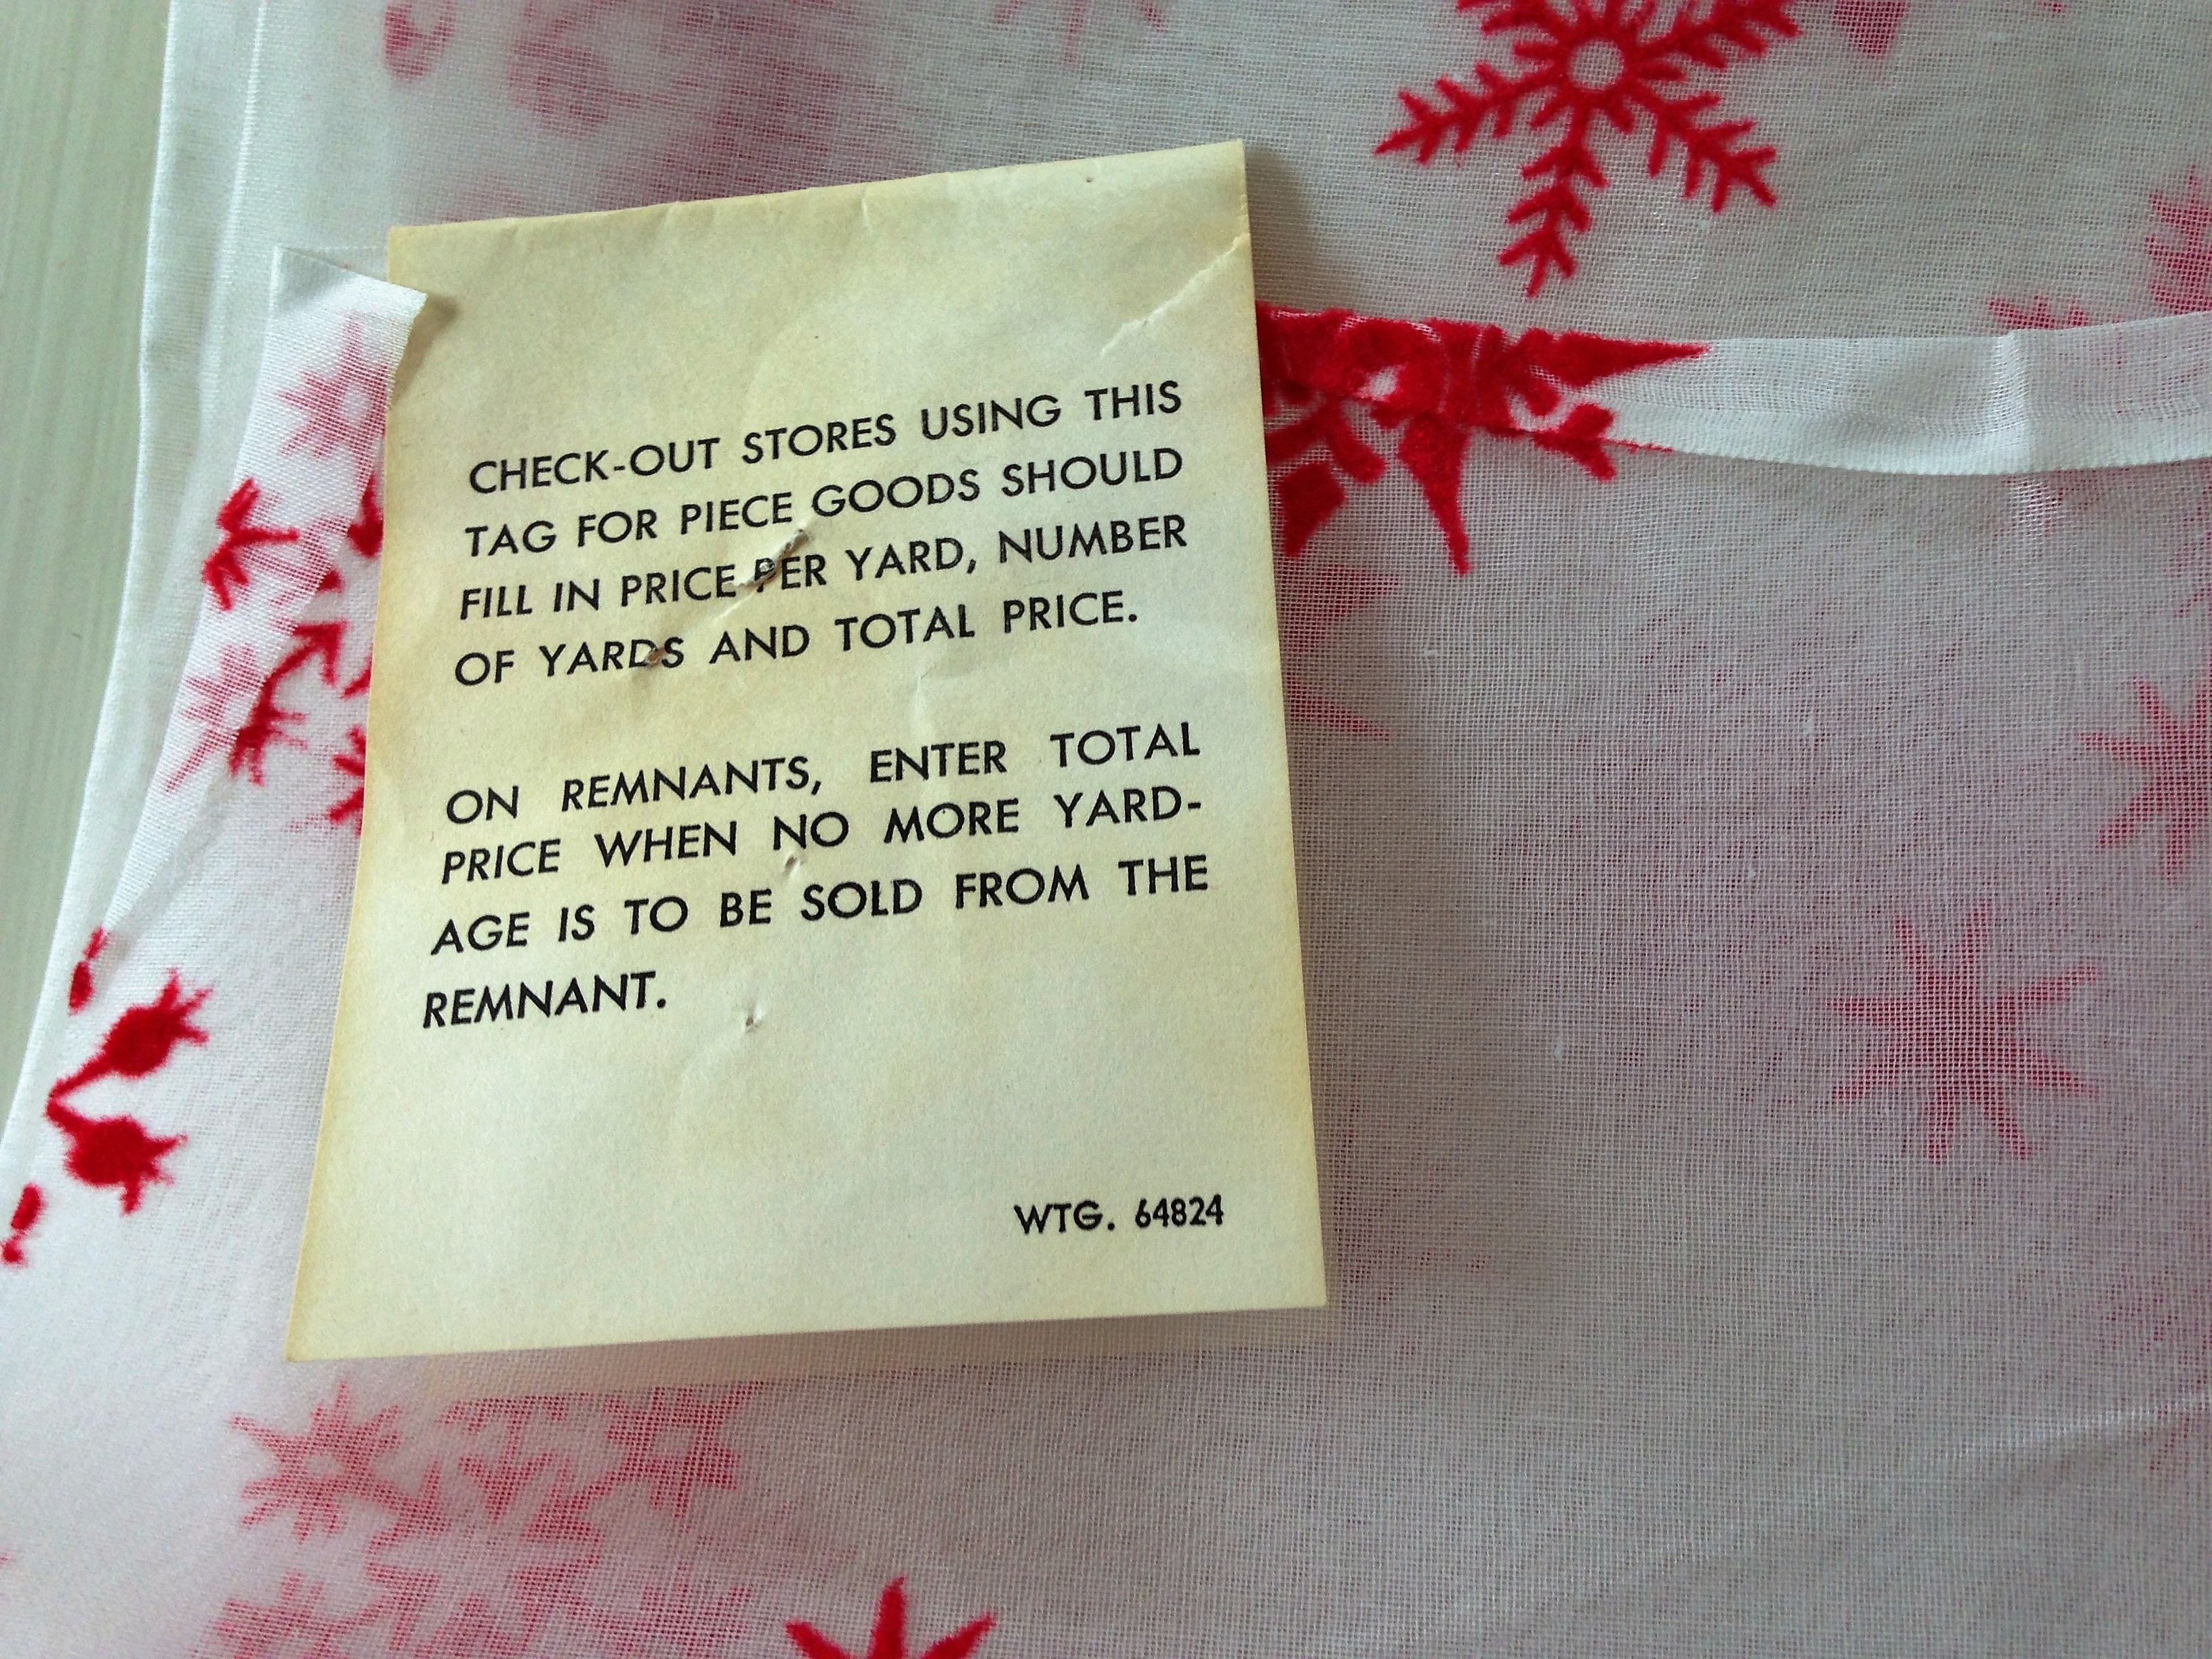 CHECK-OUT STORES USING THIS
TAG FOR PIECE GOODS SHOULD
FILL IN PRICE PER YARD, NUMBER
OF YARDS AND TOTAL PRICE.
ON REMNANTS, ENTER TOTAL
PRICE WHEN NO MORE YARD-
AGE IS TO BE SOLD FROM THE
REMNANT.
WTG. 64824